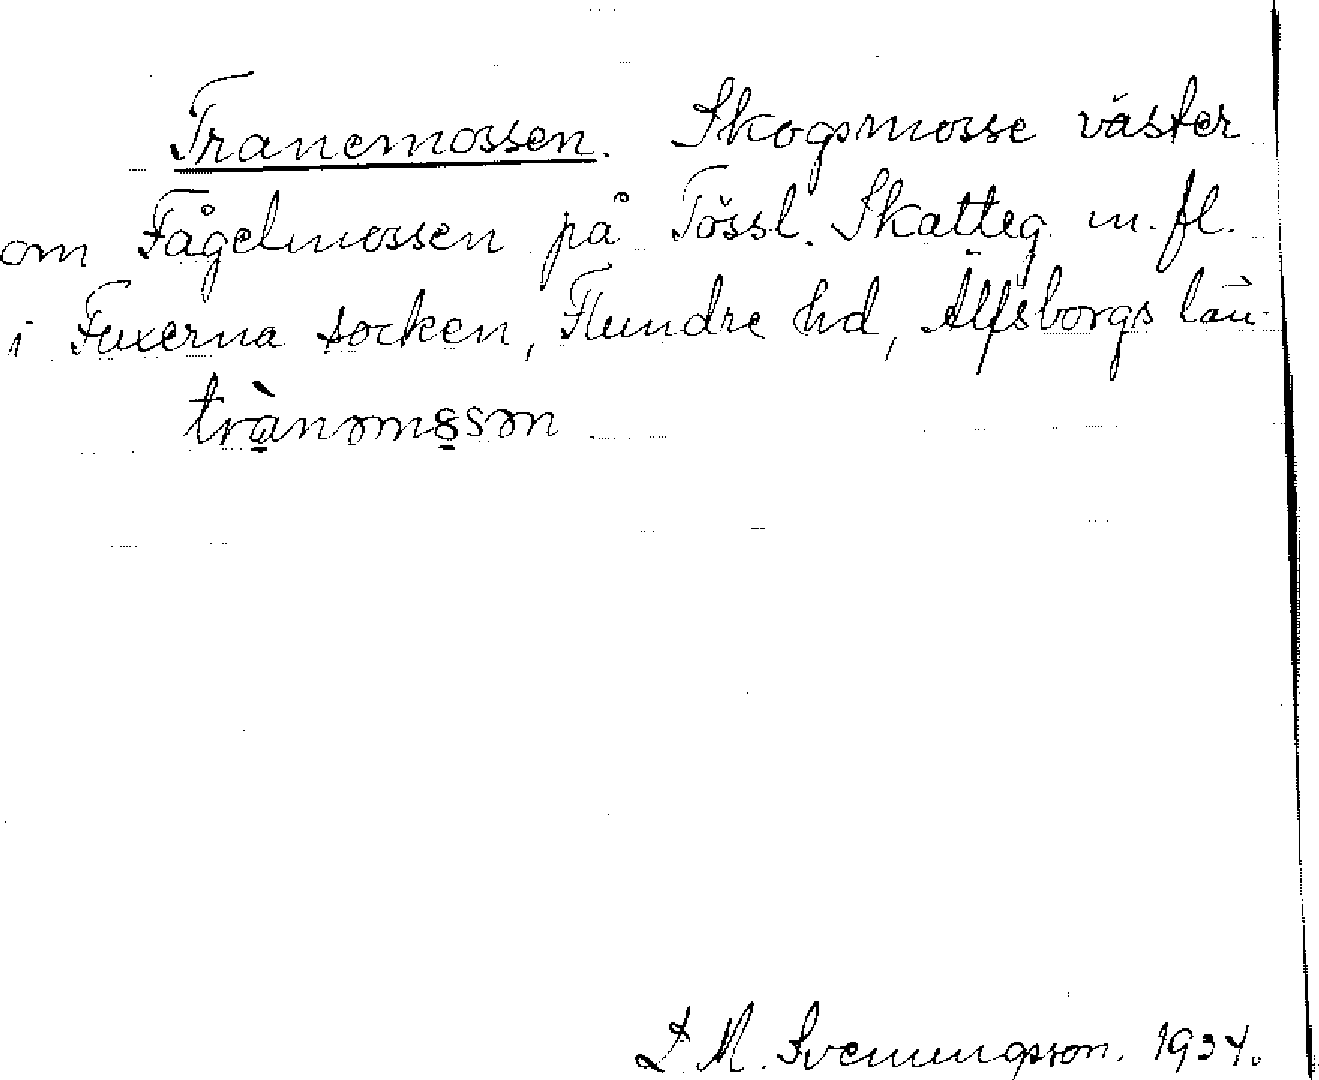 Tranemossen. Skogsmosse väster
om Fågelmossen på Tössl. Skatteg. m. fl.
i Fuxerna socken, Flundre hd, Älfsborgs län.
trànəmɔ̱ssən
M. Svenungsson. 1934.